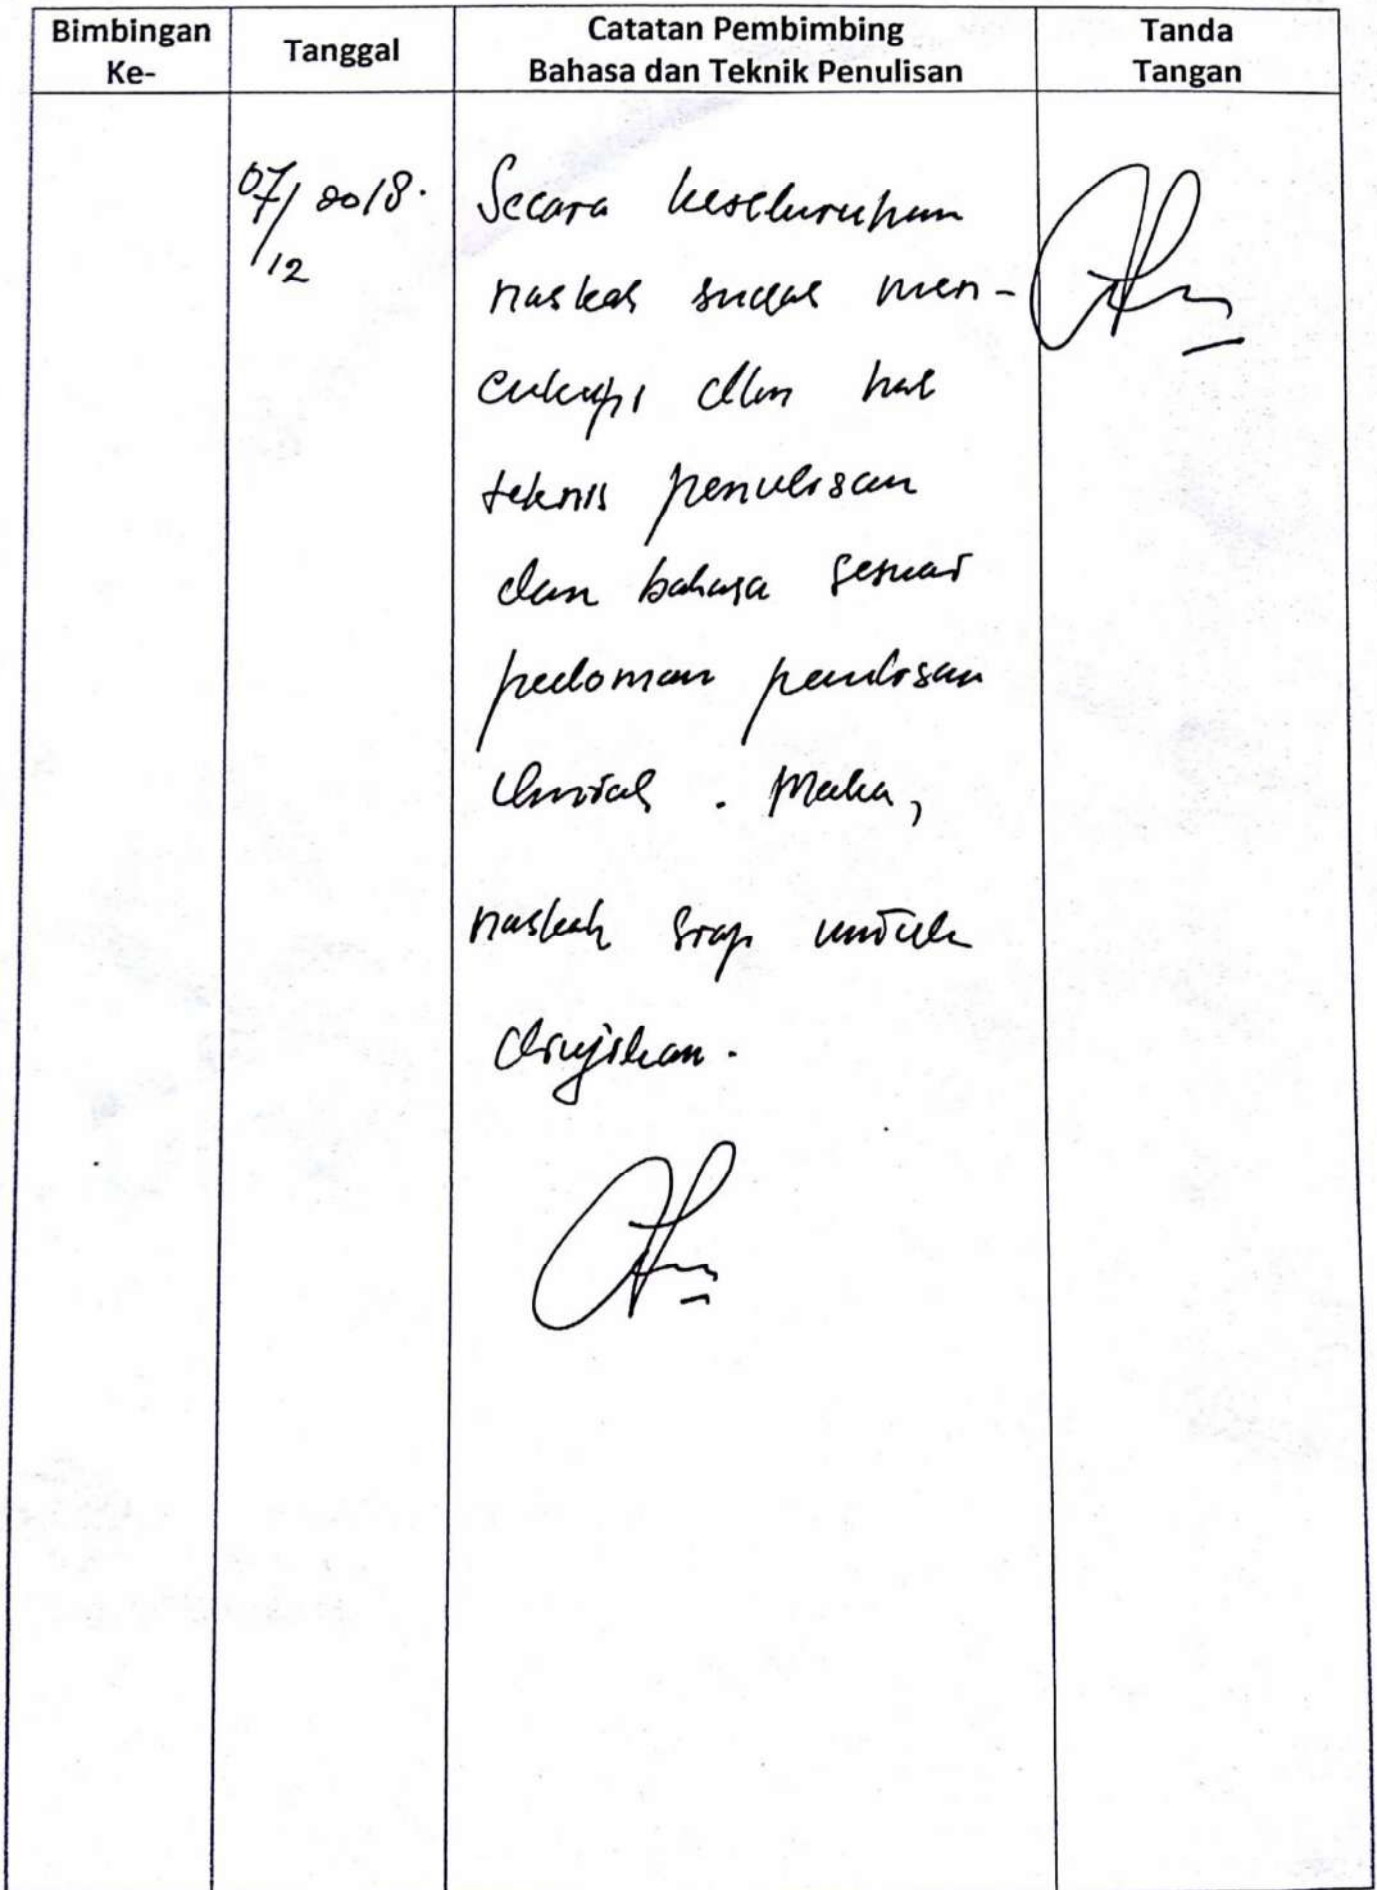 Bimbingan Ke-
Tanggal
Catatan Pembimbing
Bahasa dan Teknik Penulisan
Tanda Tangan
07/12 2018.
Secara keseluruhan
naskah sudah men-
cukupi dlm hal
teknis penulisan
dan bahasa sesuai
pedoman penulisan
ilmiah. Maka,
naskah siap untuk
diujikan.